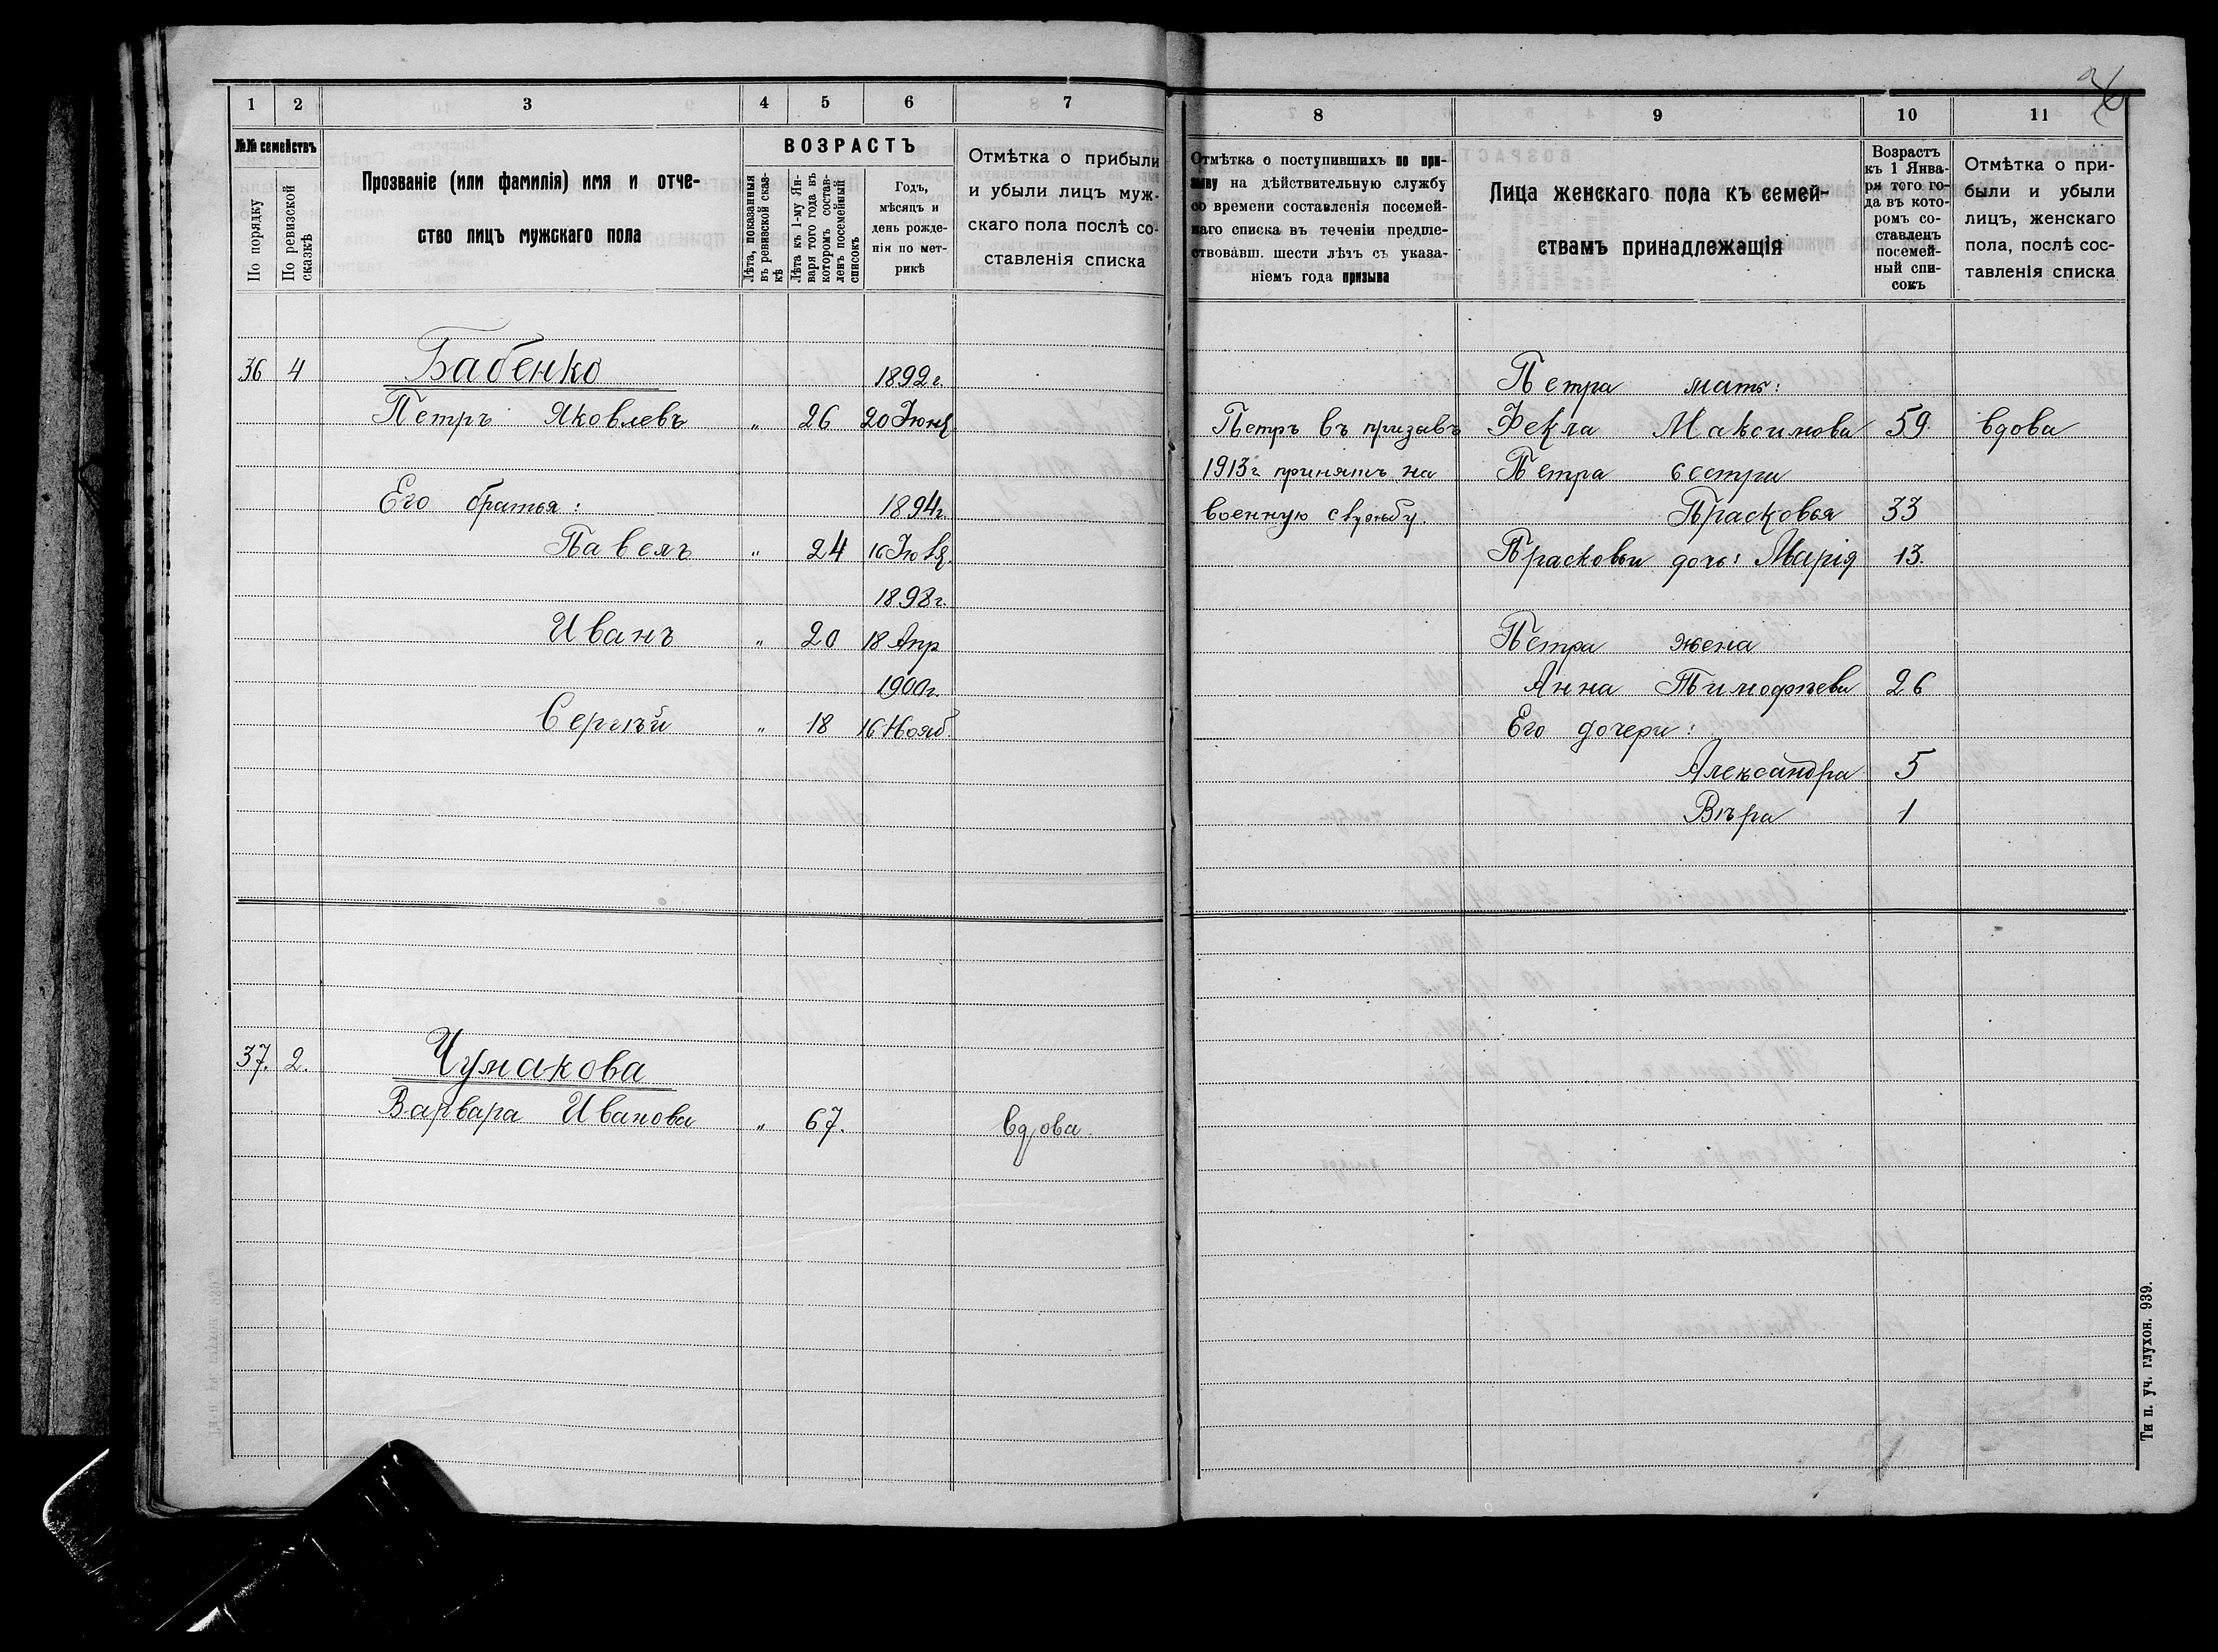 1 2 3 4 5 6 7
№№ семействъ
По порядку
По ревизской сказкѣ
Прозваніе (или фамилія) имя и отче-
ство лицъ мужскаго пола
ВОЗРАСТЪ
Лѣта, показанныя
въ ревизской сказ-
кѣ
Лѣта къ 1-му Ян-
варя того года въ
которомъ состав-
ленъ посемейный
списокъ
Годъ,
мѣсяцъ и
день рожде-
нія по мет-
рикѣ
Отмѣтка о прибыли
и убыли лицъ муж-
скаго пола послѣ со-
ставленія списка
36 4 Бабенко 1892г.
Петръ Яковлевъ " 26 20 Іюня
Его братья: 1894г.
Павелъ " 24 16 Іюля
1898г.
Иванъ " 20 18 Апр
1900г.
Сергѣй " 18 16 Нояб.
37. 2. Чумакова
Варвара Иванова " 67. вдова
8 9 10 11
Отмѣтка о поступившихъ по при-
зыву на дѣйствительную службу
со времени составленія посемей-
наго списка въ теченіи предше-
ствовавш. шести лѣтъ съ указа-
ніемъ года призыва
Лица женскаго пола къ семей-
ствамъ принадлежащія
Возрастъ
къ 1 Янва-
ря того го-
да въ кото-
ромъ со-
ставленъ
посемей-
ный спи-
сокъ
Отмѣтка о при-
были и убыли
лицъ, женскаго
пола, послѣ сос-
тавленія списка
Петра мать:
Петръ въ призывъ Фекла Максимова 59. вдова
1913г принятъ на Петра сестра
военную службу. Прасковья 33
Прасковьи дочь: Марія 13.
Петра жена
Анна Тимофѣева 26
Его дочери:
Александра 5
Вѣра 1
Ти п. уч. глухон. 939.